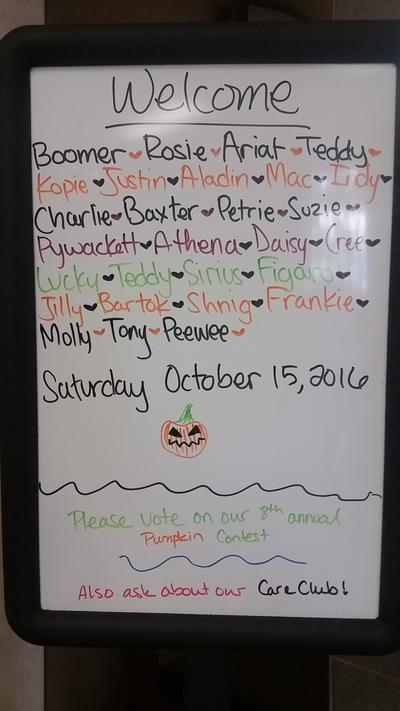 Welcome
Boomer ♥ Rosie ♥ Ariat ♥ Teddy ♥
Kopie ♥ Justin ♥ Aladin ♥ Mac ♥ Indy ♥
Charlie ♥ Baxter ♥ Petrie ♥ Suzie ♥
Pywackett ♥ Athena ♥ Daisy ♥ Cree ♥
Lucky ♥ Teddy ♥ Sirius ♥ Figaro ♥
Jilly ♥ Bartok ♥ Shnig ♥ Frankie ♥
Molly ♥ Tony ♥ Peewee ♥
Saturday October 15, 2016
Please vote on our 8th annual
Pumpkin Contest
Also ask about our Care Club!